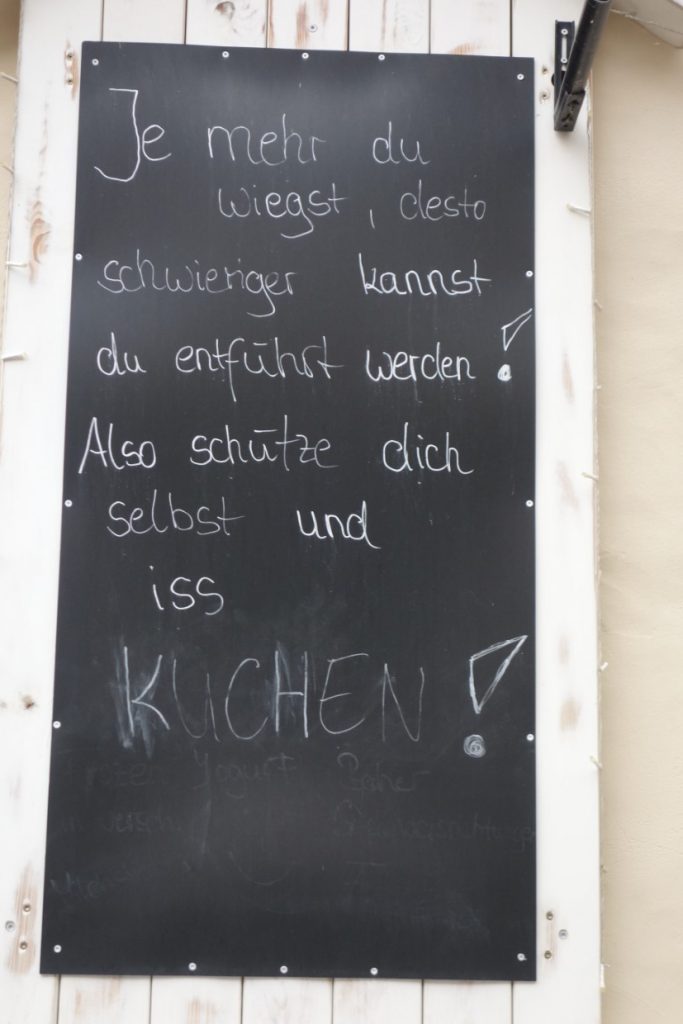 Je mehr du
wiegst, desto
schwieriger kannst
du entführst werden!
Also schütze dich
selbst und
iss
KUCHEN!
Yogurt